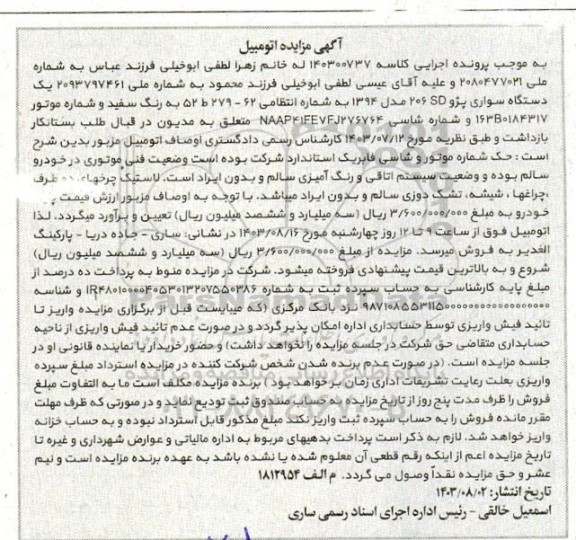 آگهی مزایده اتومبیل
به موجب پرونده اجرایی کلاسه ۱۴۰۳۰۰۷۳۷ له خانم زهرا لطفی ابوخیلی فرزند عباس به شماره
ملی ۲۰۸۰۴۷۷۰۲۱ و علیه آقای عیسی لطفی ابوخیلی فرزند محمود به شماره ملی ۲۰۹۳۷۹۷۴۶۱ یک
دستگاه سواری پژو ۲۰۶ SD مدل ۱۳۹۴ به شماره انتظامی ۶۲ - ۲۷۹ ط ۵۲ به رنگ سفید و شماره موتور
۱۶۳B۰۱۸۴۳۱۷ و شماره شاسی NAAP۴۱FEVFJ۲۷۶۷۶۴ متعلق به مدیون در قبال طلب بستانکار
بازداشت و طبق نظریه مورخ ۱۴۰۳/۰۷/۱۲ کارشناس رسمی دادگستری اوصاف اتومبیل مزبور بدین شرح
است : حک شماره موتور و شاسی فابریک استاندارد شرکت بوده است وضعیت فنی موتوری در خودرو
سالم بوده و وضعیت سیستم اتاقی و رنگ آمیزی سالم و بدون ایراد است. لاستیک چرخهای دو طرف
،چراغها ، شیشه، تشک دوزی سالم و بدون ایراد میباشد. با توجه به اوصاف مزبور ارزش قیمت
خودرو به مبلغ ۳/۶۰۰/۰۰۰/۰۰۰ ریال (سه میلیارد و ششصد میلیون ریال) تعیین و برآورد میگردد. لذا
اتومبیل فوق از ساعت ۹ تا ۱۲ روز چهارشنبه مورخ ۱۴۰۳/۰۸/۱۶ در نشانی: ساری - جاده دریا - پارکینگ
الغدیر به فروش میرسد. مزایده از مبلغ ۳/۶۰۰/۰۰۰/۰۰۰ ریال (سه میلیارد و ششصد میلیون ریال)
شروع و به بالاترین قیمت پیشنهادی فروخته میشود. شرکت در مزایده منوط به پرداخت ده درصد از
مبلغ پایه کارشناسی به حساب سپرده ثبت به شماره و شناسه
نزد بانک مرکزی (که میبایست قبل از برگزاری مزایده واریز تا
تائید فیش واریزی توسط حسابداری اداره امکان پذیر گردد و در صورت عدم تائید فیش واریزی از ناحیه
حسابداری متقاضی حق شرکت در جلسه مزایده را نخواهد داشت) و حضور خریدار یا نماینده قانونی او در
جلسه مزایده است. (در صورت عدم برنده شدن شخص شرکت کننده در مزایده استرداد مبلغ سپرده
واریزی بعلت رعایت تشریفات اداری زمان بر خواهد بود) برنده مزایده مکلف است ما به التفاوت مبلغ
فروش را ظرف مدت پنج روز از تاریخ مزایده به حساب صندوق ثبت تودیع نماید و در صورتی که ظرف مهلت
مقرر مانده فروش را به حساب سپرده ثبت واریز نکند مبلغ مذکور قابل استرداد نبوده و به حساب خزانه
واریز خواهد شد. لازم به ذکر است پرداخت بدهیهای مربوط به اداره مالیاتی و عوارض شهرداری و غیره تا
تاریخ مزایده اعم از اینکه رقم قطعی آن معلوم شده یا نشده باشد به عهده برنده مزایده است و نیم
عشر و حق مزایده نقداً وصول می گردد. م الف ۱۸۱۲۹۵۴
تاریخ انتشار: ۱۴۰۳/۰۸/۰۲
اسمعیل خالقی - رئیس اداره اجرای اسناد رسمی ساری